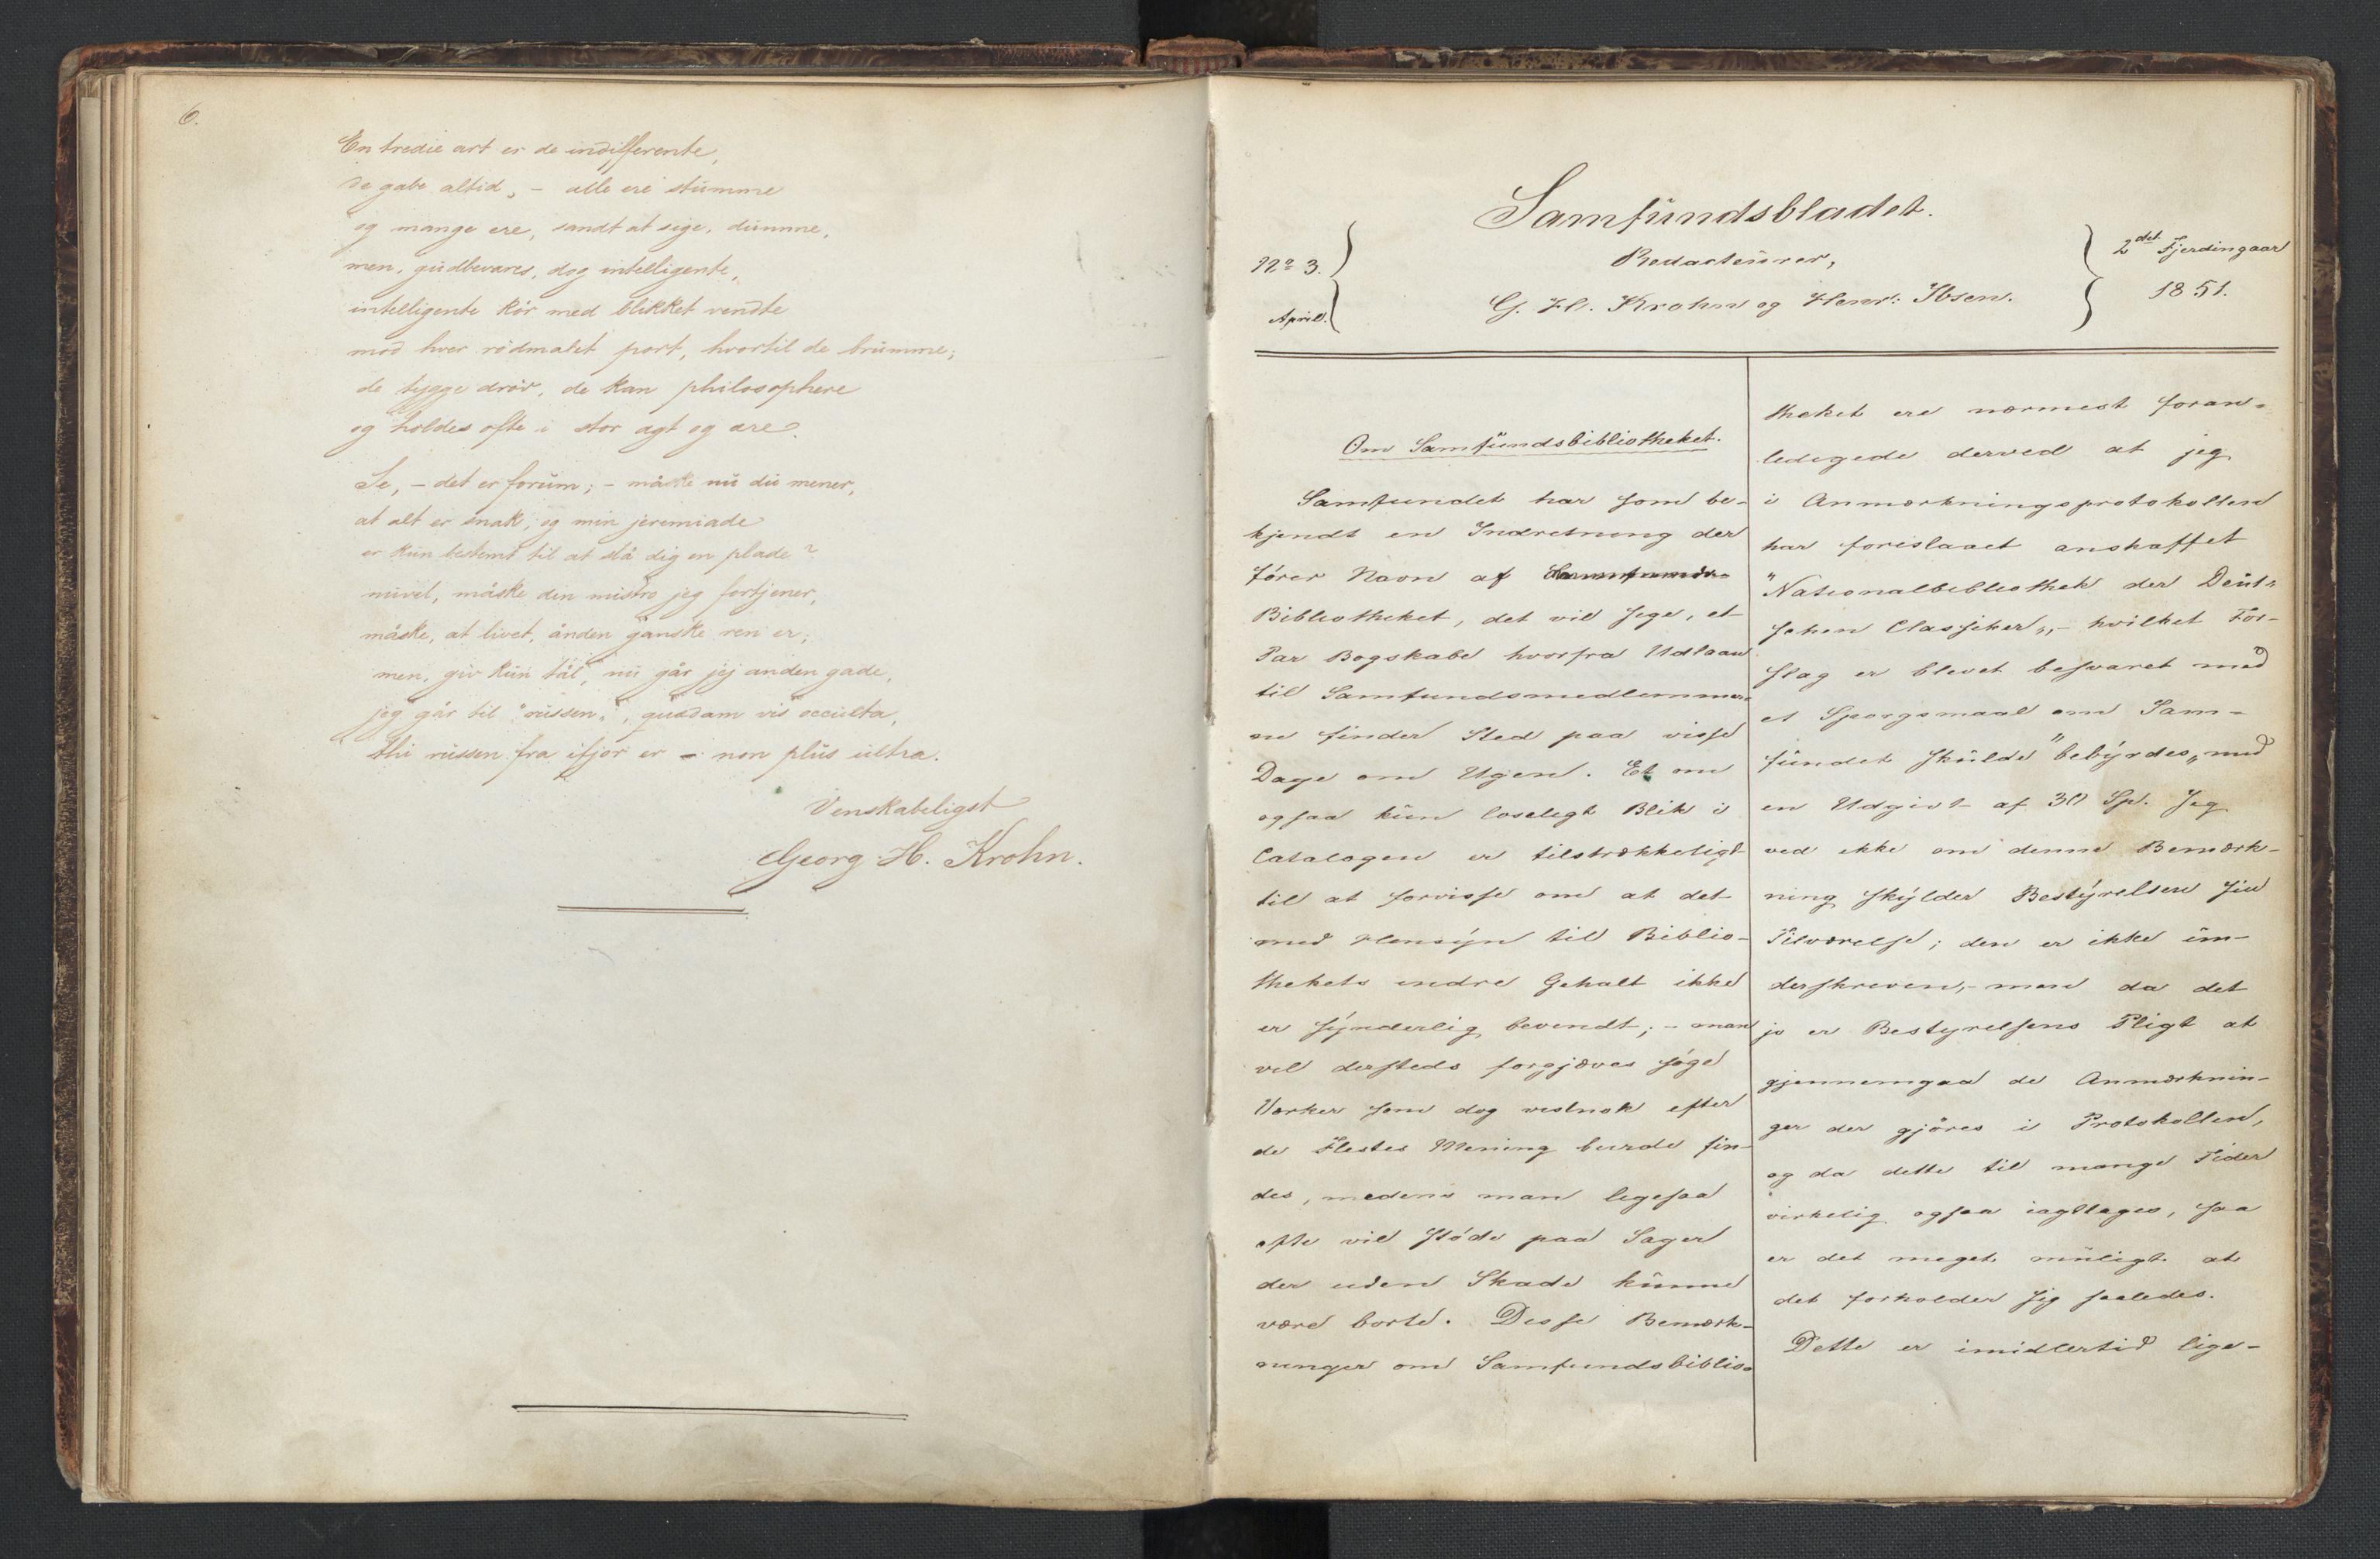 6.
En tredie art er de indifferente,
de gabe altid, – alle ere stumme
og mange ere, sandt at sige, dumme,
men, gudbevares, dog intelligente,
intelligente kör med blikket vendte
mod hver rödmalet port, hvortil de brumme;
de tygge dröv, de kan philosophere
og holdes ofte i stor agt og ære.
Se, – det er forum; – måske nu du mener,
at alt er snak, og min jeremiade
er kun bestemt til at slå dig en plade?
nuvel, måske din mistro jeg fortjener,
måske, at livet, ånden ganske ren er;
men, giv kun tål, nu går jej anden gade,
jeg går til "russen", quadam vis occulta,
thi russen fra ifjor er – non plus ultra.
Venskabeligst
Georg H. Krohn.
Samfundsbladet.
Redacteurer,
G. H. Krohn og Henr: Ibsen.
No 3.
April.
2det Fjerdingaar
1851.
Om Samfundsbibliotheket.
Samfundet har som be-
kjendt en Indretning der
förer Navn af
Bibliotheket, det vil sige, et
Par Bogskabe hvorfra Udlaan
til Samfundsmedlemmer-
ne finder Sted paa visse
Dage om Ugen. Et om
ogsaa kun löseligt Blik i
Catalogen er tilstrækkeligt
til at forvisse om at det
med Hensyn til Biblio-
thekets indre Gehalt ikke
er synderlig bevendt; – man
vil dersteds forgjæves söge
Værker som dog vistnok efter
de Flestes Mening burde fin-
des, medens man ligesaa
ofte vil stöde paa Sager
der uden Skade kunne
være borte. Disse Bemærk-
ninger om Samfundsbiblio-
theket ere nærmest foran-
ledigede derved at jeg
i Anmærkningsprotokollen
har foreslaaet anskaffet
"Nationalbibliothek der Deut-
schen Classiker„ – hvilket For-
slag er blevet besvaret med
et Spørgsmaal om Sam-
fundet skulde "bebyrdes„ med
en Udgivt af 30 Sp. Jeg
ved ikke om denne Bemærk-
ning skylder Bestyrelsen sin
Tilværelse; den er ikke un-
derskreven, – men da det
jo er Bestyrelsens Pligt at
gjennemgaa de Anmærknin-
ger der gjöres i Protokollen,
og da dette til mange Tider
virkelig ogsaa iagttages, saa
er det meget muligt at
det forholder sig saaledes.
Dette er imidlertid lige-